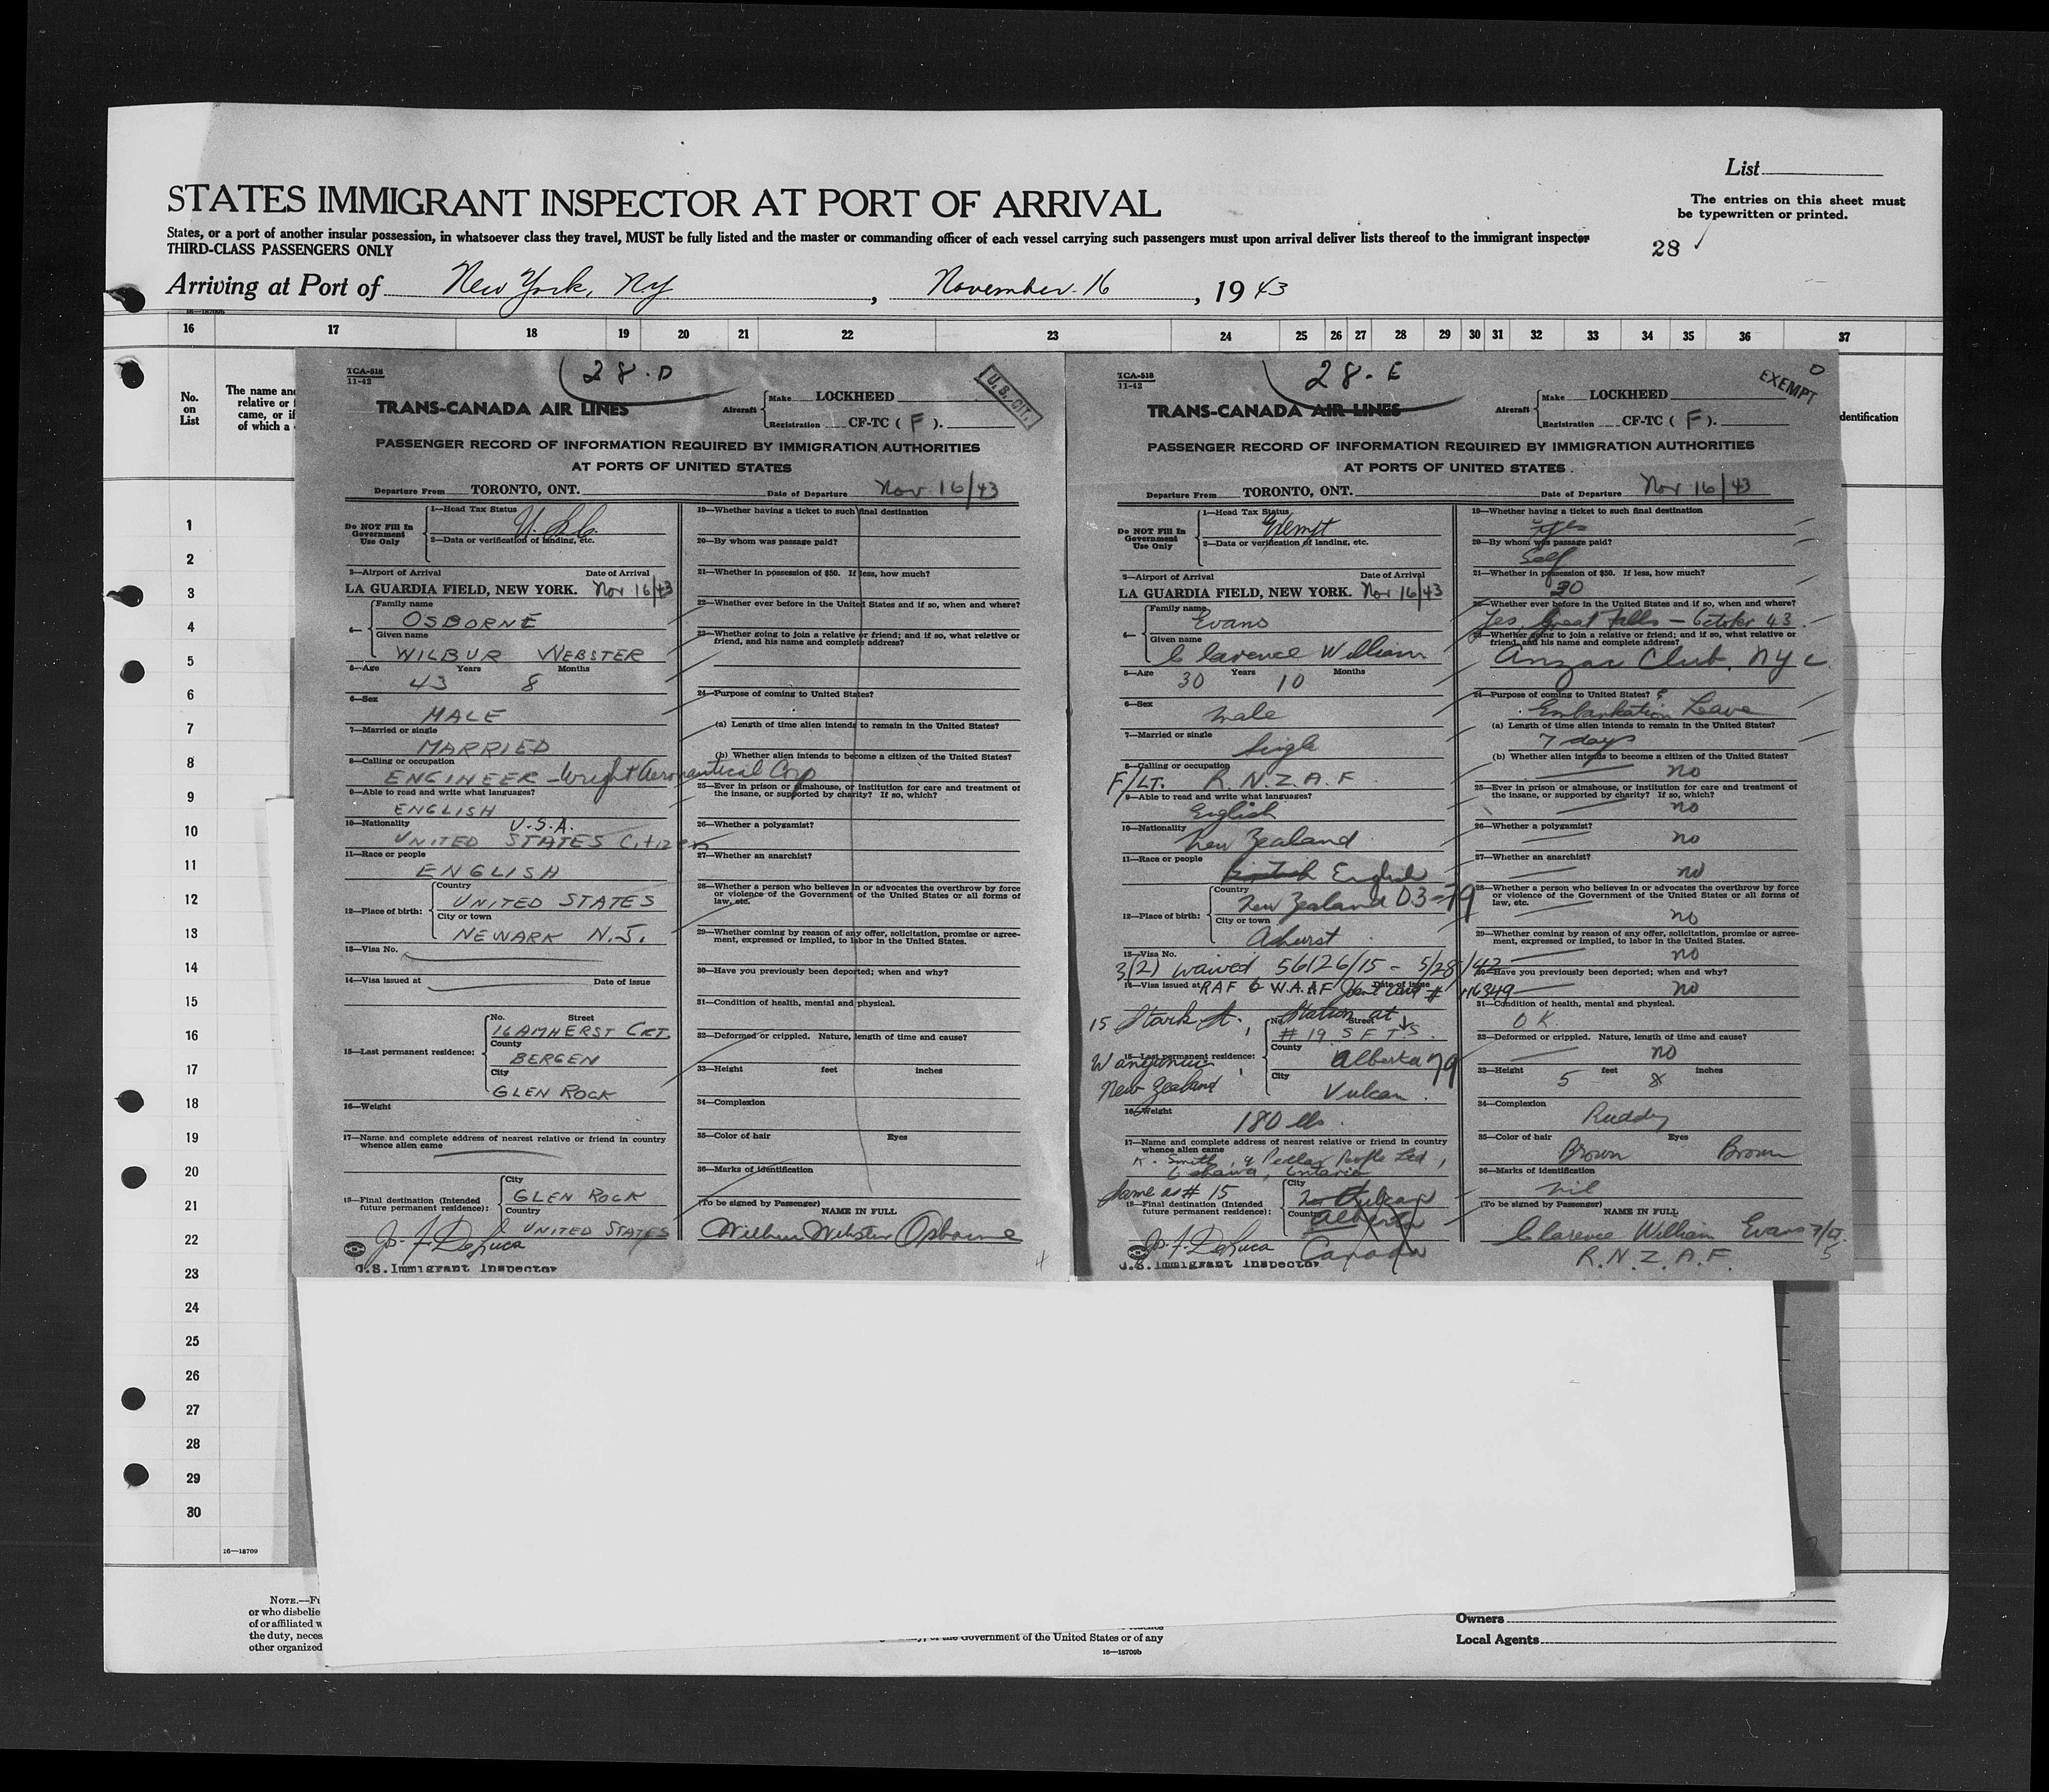 List
STATES IMMIGRANT INSPECTOR AT PORT OF ARRIVAL
The entries on this sheet must
be typewritten or printed.
States, or a port of another insular possession, in whatsoever class they travel, MUST be fully listed and the master or commanding officer of each vessel carrying such passengers must upon arrival deliver lists thereof to the immigrant inspector
THIRD-CLASS PASSENGERS ONLY
28
Arriving at Port of New York, NY, November 16, 1943
16 17 18 19 20 21 22 23 24 25 26 27 28 29 30 31 32 33 34 35 36 37
No.
on
List
The name and
relative or
came, or if
of which a
dentification
1
2
3
4
5
6
7
8
9
10
11
12
13
14
15
16
17
18
19
20
21
22
23
24
25
26
27
28
29
30
16—18709
TCA-518
11-42
28.D
U.S. CIT.
TRANS-CANADA AIR LINES
Aircraft
Make LOCKHEED
Registration CF-TC ( F ).
PASSENGER RECORD OF INFORMATION REQUIRED BY IMMIGRATION AUTHORITIES
AT PORTS OF UNITED STATES
Departure From TORONTO, ONT. Date of Departure Nov 16/43
Do NOT Fill In
Government
Use Only
1—Head Tax Status
2—Data or verification of landing, etc.
3—Airport of Arrival Date of Arrival
LA GUARDIA FIELD, NEW YORK. Nov 16/43
4—
Family name
OSBORNE
Given name
WILBUR WEBSTER
5—Age Years Months
43 8
6—Sex
MALE
7—Married or single
MARRIED
8—Calling or occupation
ENGINEER - Wright Aeronautical Corp
9—Able to read and write what languages?
ENGLISH
10—Nationality U.S.A.
UNITED STATES Citizen
11—Race or people
ENGLISH
12—Place of birth:
Country
UNITED STATES
City or town
NEWARK N.J.
13—Visa No.
14—Visa issued at Date of issue
15—Last permanent residence:
No. Street
16 AMHERST CRT.
County
BERGEN
City
GLEN ROCK
16—Weight
17—Name and complete address of nearest relative or friend in country
whence alien came
18—Final destination (Intended
future permanent residence):
City
GLEN ROCK
Country
UNITED STATES
Jo. F. DeLuca
U.S. Immigrant Inspector
19—Whether having a ticket to such final destination
20—By whom was passage paid?
21—Whether in possession of $50. If less, how much?
22—Whether ever before in the United States and if so, when and where?
23—Whether going to join a relative or friend; and if so, what relative or
friend, and his name and complete address?
24—Purpose of coming to United States?
(a) Length of time alien intends to remain in the United States?
(b) Whether alien intends to become a citizen of the United States?
25—Ever in prison or almshouse, or institution for care and treatment of
the insane, or supported by charity? If so, which?
26—Whether a polygamist?
27—Whether an anarchist?
28—Whether a person who believes in or advocates the overthrow by force
or violence of the Government of the United States or all forms of
law, etc.
29—Whether coming by reason of any offer, solicitation, promise or agree-
ment, expressed or implied, to labor in the United States.
30—Have you previously been deported; when and why?
31—Condition of health, mental and physical.
32—Deformed or crippled. Nature, length of time and cause?
33—Height feet inches
34—Complexion
35—Color of hair Eyes
36—Marks of identification
(To be signed by Passenger)
NAME IN FULL
Wilbur Webster Osborne
4
TCA-518
11-42
28-E
0
EXEMPT
TRANS-CANADA AIR LINES
Aircraft
Make LOCKHEED
Registration CF-TC ( F ).
PASSENGER RECORD OF INFORMATION REQUIRED BY IMMIGRATION AUTHORITIES
AT PORTS OF UNITED STATES
Departure From TORONTO, ONT. Date of Departure Nov 16/43
Do NOT Fill In
Government
Use Only
1—Head Tax Status
Exempt
2—Data or verification of landing, etc.
3—Airport of Arrival Date of Arrival
LA GUARDIA FIELD, NEW YORK. Nov 16/43
4—
Family name
Evans
Given name
Clarence William
5—Age Years Months
30 10
6—Sex
Male
7—Married or single
Single
8—Calling or occupation
F/LT. R.N.Z.A.F.
9—Able to read and write what languages?
English
10—Nationality
New Zealand
11—Race or people
English
12—Place of birth:
Country
New Zealand 03-79
City or town
Ashurst
13—Visa No.
3(2) waived 56126/15 - 5/28/42
14—Visa issued at Date of issue
RAF & W.A.AF Ident Card # 116349
15 Stark St.
Wanganui
New Zealand
15—Last permanent residence:
Station at
No. Street
#19 S F T S
County
Alberta 79
City
Vulcan
16—Weight
180 lbs.
17—Name and complete address of nearest relative or friend in country
whence alien came
K. Smith, % Pedlar People Ltd,
Oshawa, Ontario
Same as #15
18—Final destination (Intended
future permanent residence):
City
Vulcan
Country
Alberta
Canada
Jo. F. DeLuca
U.S. Immigrant Inspector
19—Whether having a ticket to such final destination
Yes
20—By whom was passage paid?
Self
21—Whether in possession of $50. If less, how much?
30
22—Whether ever before in the United States and if so, when and where?
Yes, Great Falls - October 43
23—Whether going to join a relative or friend; and if so, what relative or
friend, and his name and complete address?
Anzac Club, NYC
24—Purpose of coming to United States?
Embarkation Leave
(a) Length of time alien intends to remain in the United States?
7 days
(b) Whether alien intends to become a citizen of the United States?
no
25—Ever in prison or almshouse, or institution for care and treatment of
the insane, or supported by charity? If so, which?
no
26—Whether a polygamist?
no
27—Whether an anarchist?
no
28—Whether a person who believes in or advocates the overthrow by force
or violence of the Government of the United States or all forms of
law, etc.
no
29—Whether coming by reason of any offer, solicitation, promise or agree-
ment, expressed or implied, to labor in the United States.
no
30—Have you previously been deported; when and why?
no
31—Condition of health, mental and physical.
OK
32—Deformed or crippled. Nature, length of time and cause?
no
33—Height feet inches
5 8
34—Complexion
Ruddy
35—Color of hair Eyes
Brown Brown
36—Marks of identification
nil
(To be signed by Passenger)
NAME IN FULL
Clarence William Evans F/Lt.
R.N.Z.A.F.
5
NOTE.—
or who disbelie
of or affiliated w
the duty, neces
other organized
Government of the United States or of any
16—18709b
Owners
Local Agents